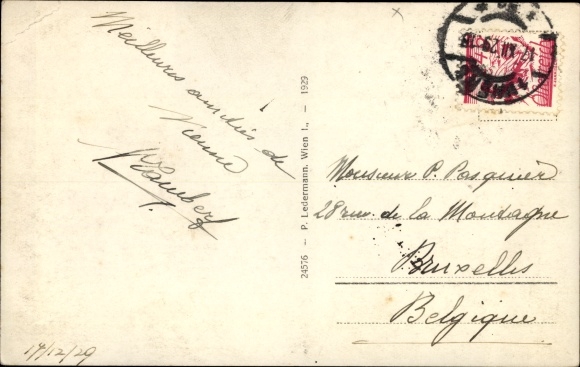 Meilleures amitiés de
Vienne
24576 – P. Ledermann. Wien I., – 1929
Monsieur P. Pasquier
28 rue de la Montagne
Bruxelles
Belgique
17/12/29